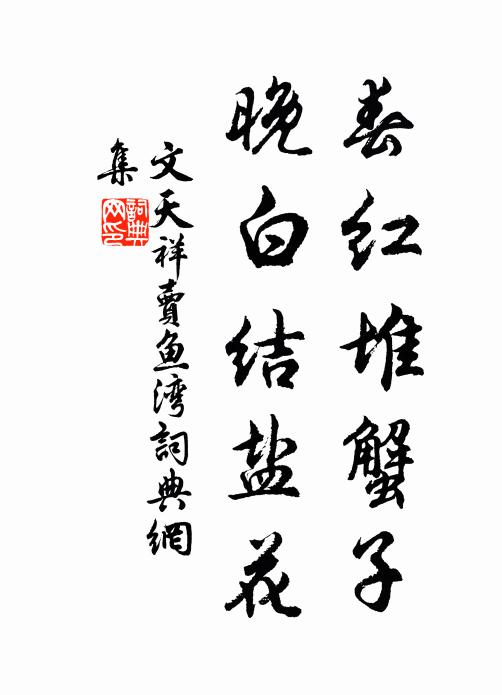 春红堆蟹子
晚白结盐花
文天祥賣鱼湾詞典網
集
詞典网印